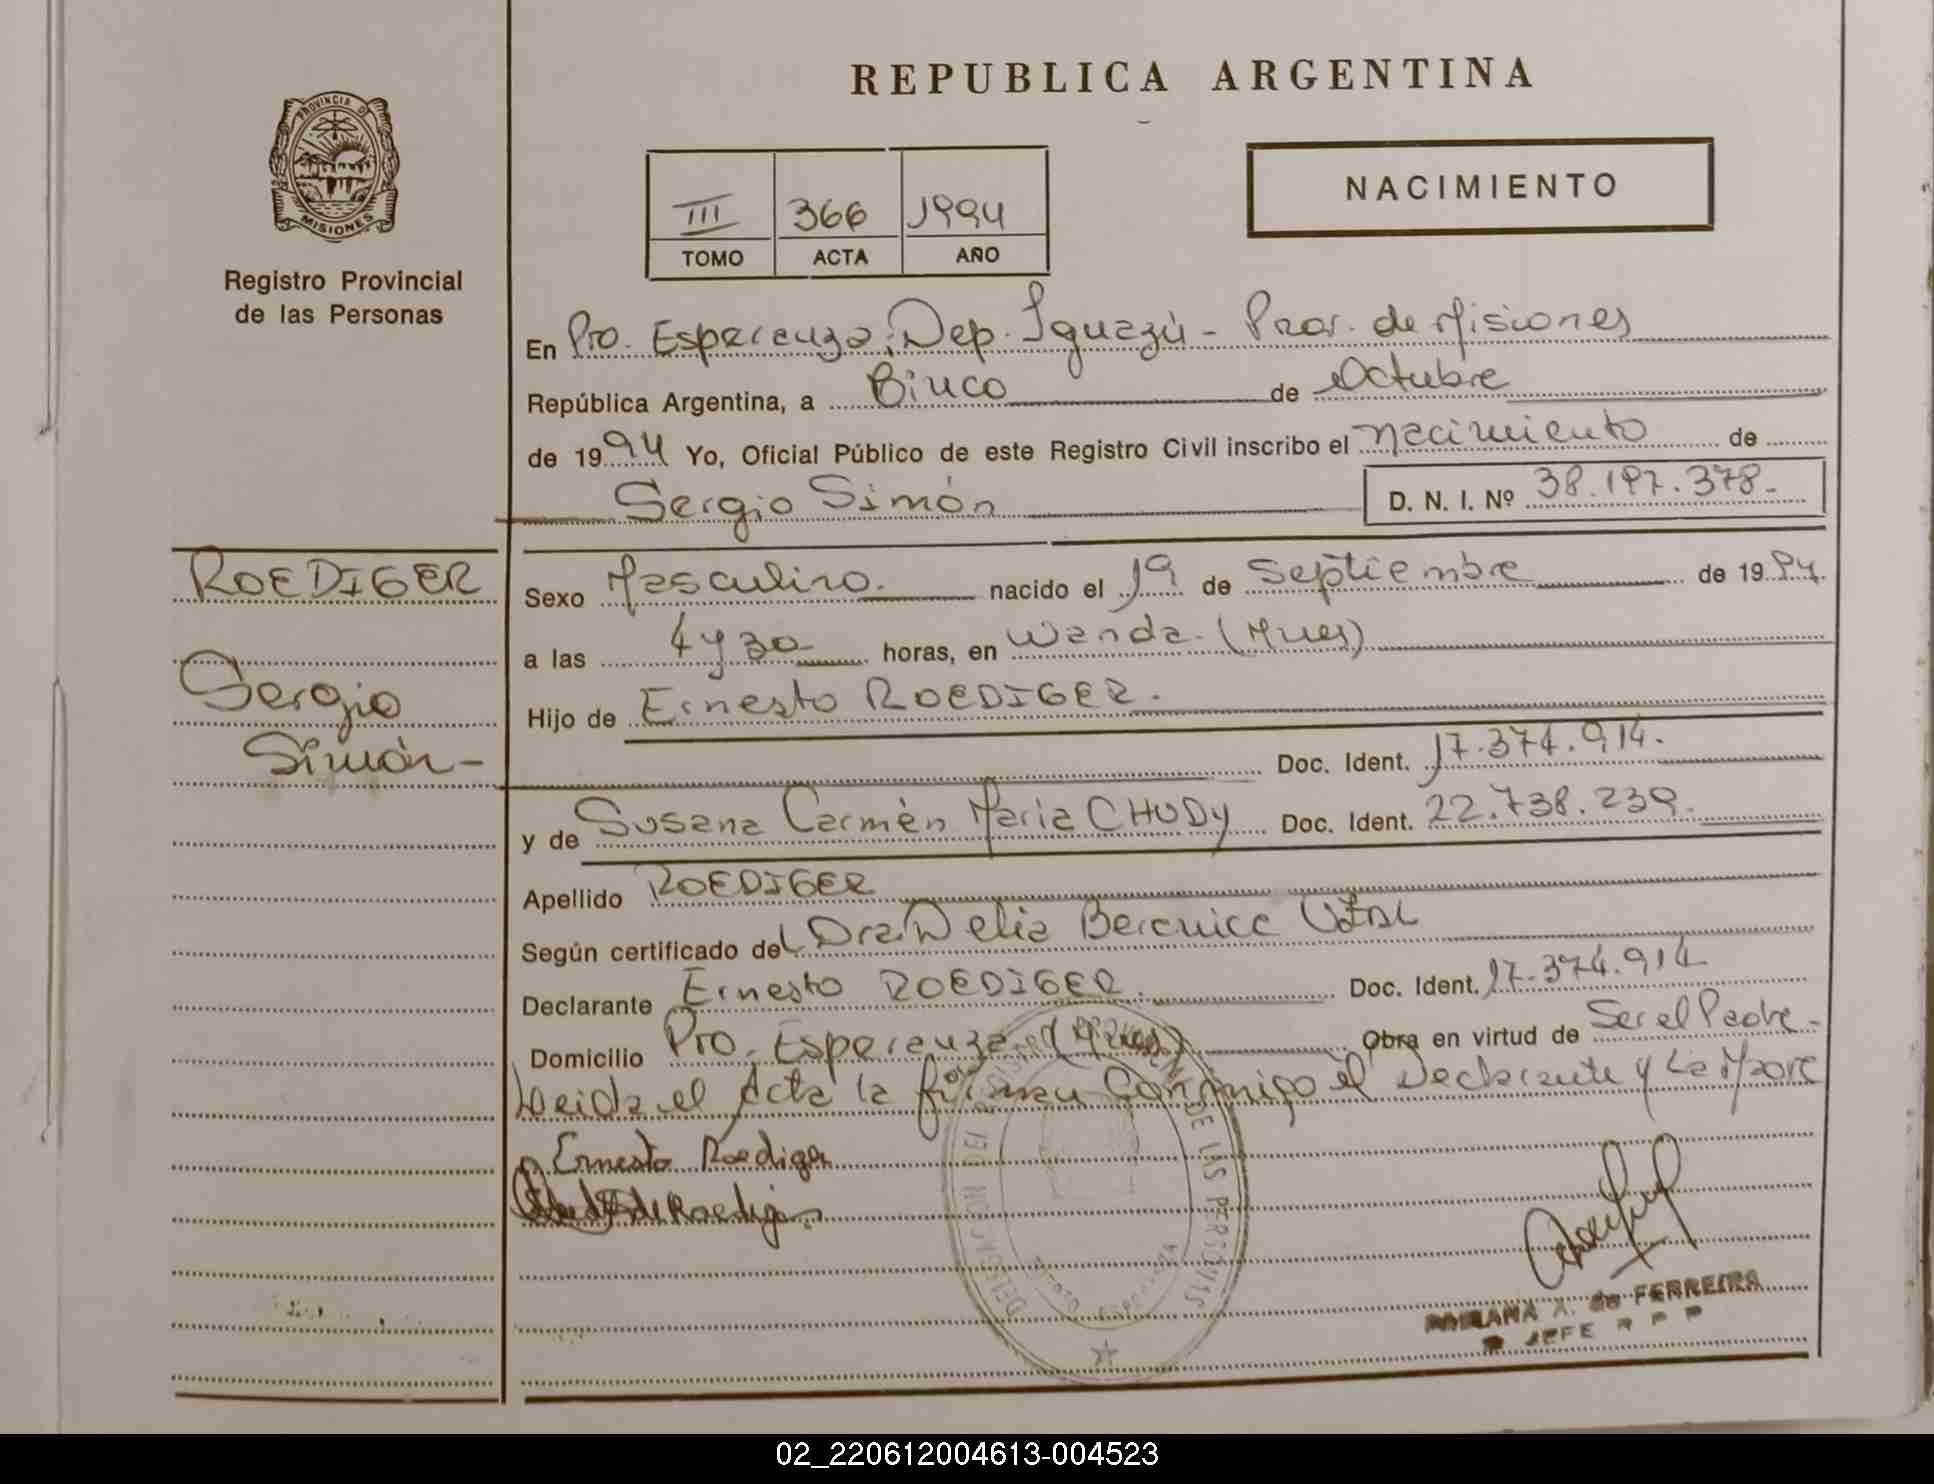 REPUBLICA ARGENTINA
PROVINCIA DE
MISIONES
Registro Provincial
de las Personas
III 366 1994
TOMO ACTA AÑO
NACIMIENTO
En Pto. Esperanza; Dep. Iguazú - Prov. de Misiones
República Argentina, a Cinco de Octubre
de 1994 Yo, Oficial Público de este Registro Civil inscribo el nacimiento de
Sergio Simón D. N. I. Nº 38.197.378.-
ROEDIGER
Sergio
Simón-
Sexo Masculino. nacido el 19 de Septiembre de 1994.
a las 4 y 30 horas, en Wanda. (Mnes)
Hijo de Ernesto ROEDIGER.
Doc. Ident. 17.374.914.
y de Susana Carmén Maria CHUDY Doc. Ident. 22.738.239.
Apellido ROEDIGER
Según certificado de Dra Delia Berenice
Declarante Ernesto ROEDIGER. Doc. Ident. 17.374.914
Domicilio Pto. Esperanza (Mnes) Obra en virtud de Ser el Padre-
Leida el Acta la firman Conmigo el Declarante y La Madre
Ernesto Roediger
de Roediger
DELEGACION DEL
DE LAS PERSONAS
PUERTO ESPERANZA
A. de FERREIRA
JEFE R P P
02_220612004613-004523